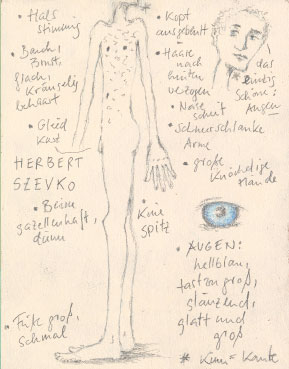 • Hals
stimmig
• Bauch,
Brust,
flach,
kräuselig
behaart
• Glied
kurz
HERBERT
SZEVKO
• Beine
gazellenhaft,
dünn
• Füße groß,
schmal
• Kopf
ausgebeult
• Haare
nach
hinten
verzogen
• Nase
scharf
• Schwerschlanke
Arme
• große
knöchelige
Hände
das
einzig
Schöne:
Augen
• Knie
spitz
• AUGEN:
hellblau,
fast zu groß,
glänzend,
glatt und
groß
* Kinn = Kante